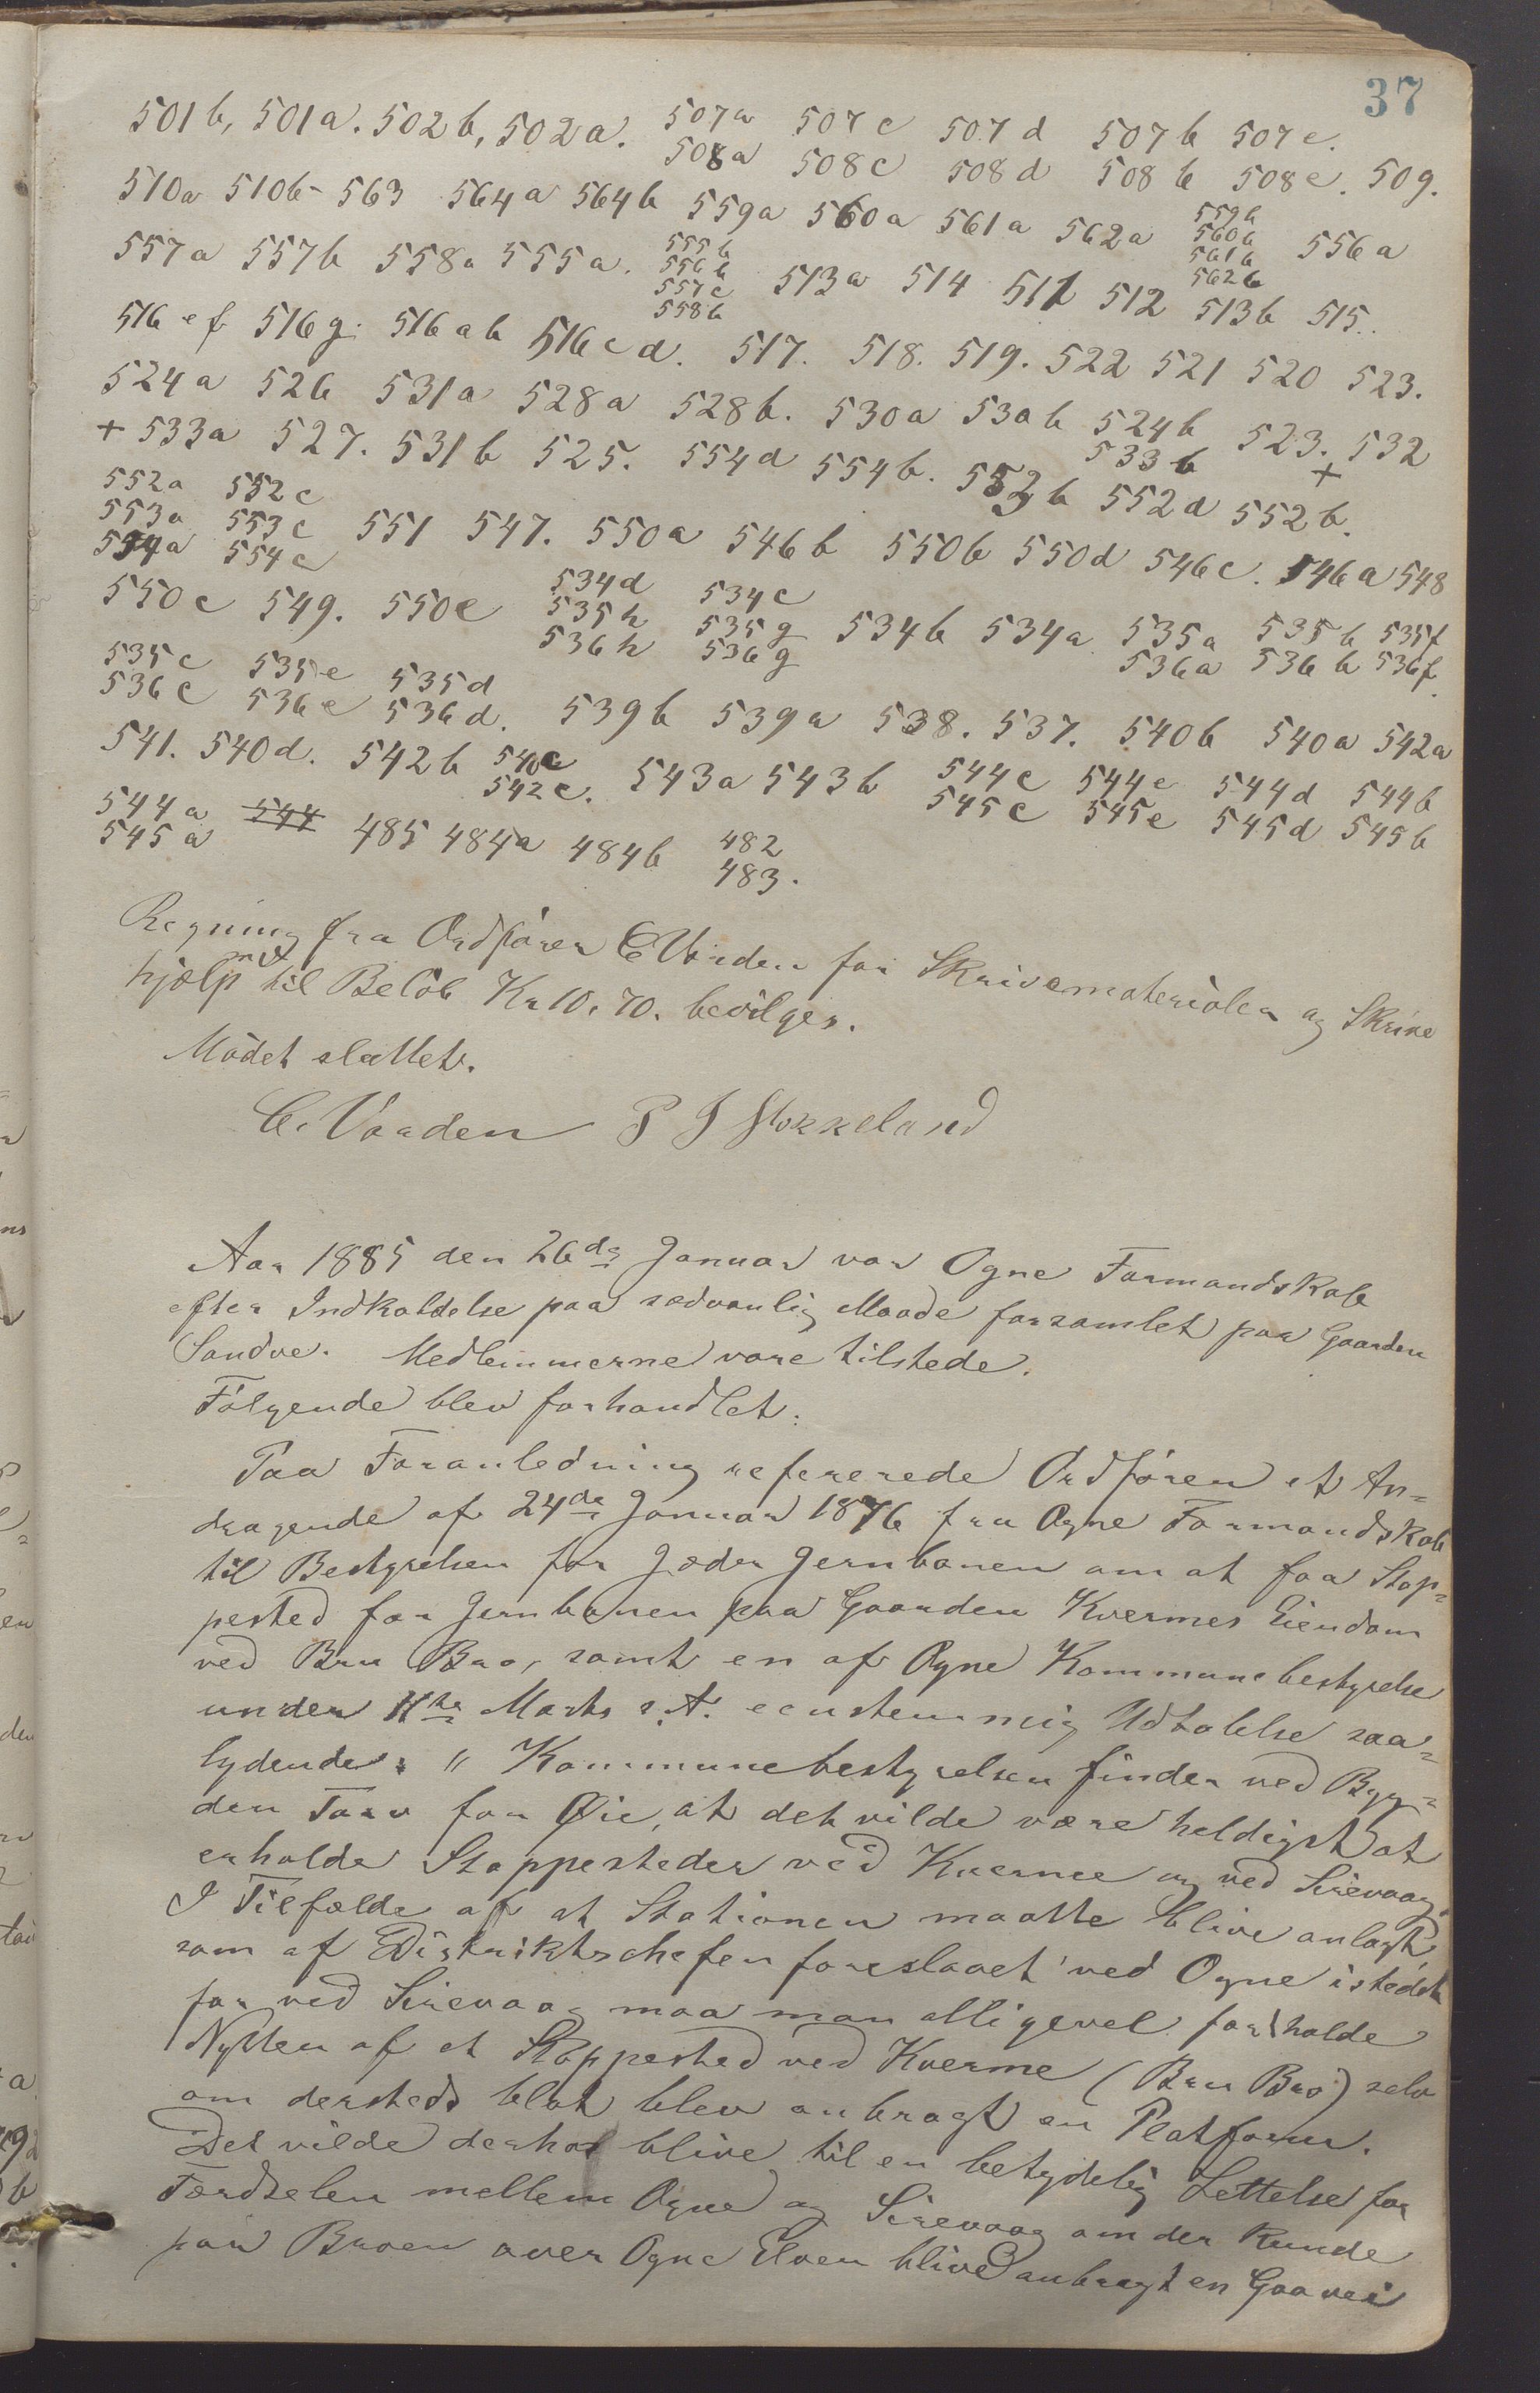 37
501b, 501a. 502b, 502a. 507a 507c 507d 507b 507e.
508a 508c 508d 508b 508e. 509.
510a 510b 563 564a 564b 559a 560a 561a 562a 559b 560b 561b 562b 556a
557a 557b 558a 555a. 555b 556b 557c 558b 513a 514 511 512 513b 515.
516 ef 516g. 516ab 516cd. 517. 518. 519. 522 521 520 523.
524a 526 531a 528a 528b. 530a 530b 524b 523. 532
+ 533a 527. 531b 525. 554d 554b. 533b 552d 552b. +
552a 552c
553a 553c 551 547. 550a 546b 550b 550d 546c. 546a 548
554a 554c
550c 549. 550e 534d 534c
535h 535g 534b 534a 535a 535b 535f
536h 536g 536a 536b 536f.
535c 535e 535d
536c 536e 536d. 539b 539a 538. 537. 540b 540a 542a
541. 540d. 542b 540c 543a 543b 544c 544e 544d 544b
542c. 545c 545e 545d 545b
544a 544 485 484a 484b 482
545a 483.
Regning fra Ordförer C Vaaden for Skrivematerialer og Skrive
hjælp m. v. til Belöb Kr 10,70. bevilges.
Mödet sluttet.
C. Vaaden P J Stokkeland
Aar 1885 den 26de Januar var Ogne Formandskab
efter Indkaldelse paa sædvanlig Maade forsamlet paa Gaarden
Sandve. Medlemmerne vare tilstede.
Fölgende blev forhandlet:
Paa Foranledning refererede Ordfören et An-
dragende af 24de Januar 1876 fra Ogne Formandskab
til Bestyrelsen for Jæder Jernbanen om at faa Stop-
pested for Jernbanen paa Gaarden Kvermes Eiendom
ved Bru Bro, samt en af Ogne Kommunebestyrelse
under 11te Marts s. A. eenstemmig Udtalelse saa-
lydende: "Kommunebestyrelsen finder ved Byg-
den Tarv for Øie, at det vilde være heldigst at
erholde Stoppesteder ved Kverme og ved Sirevaag.
I Tilfælde af at Stationen maatte blive anlagt,
som af Distriktschefen foreslaaet ved Ogne istedet
for ved Sirevaag maa man alligevel forholde
Nytten af et Stoppested ved Kverme (Bru Bro) selv
om dersteds blot blev anbragt en Platform.
Det vilde derhos blive til en betydelig Lettelse for
Færdselen mellem Ogne og Sirevaag om der kunde
paa Broen over Ogne Elven blive anbragt en Gaavei